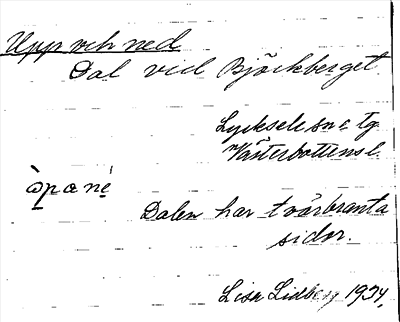 Upp och ned
Dal vid Björkberget.
Lycksele sn o tg
Västerbottens l.
òpæné
Dalen har tvärbranta
sidor.
Lisa Lidberg 1934.